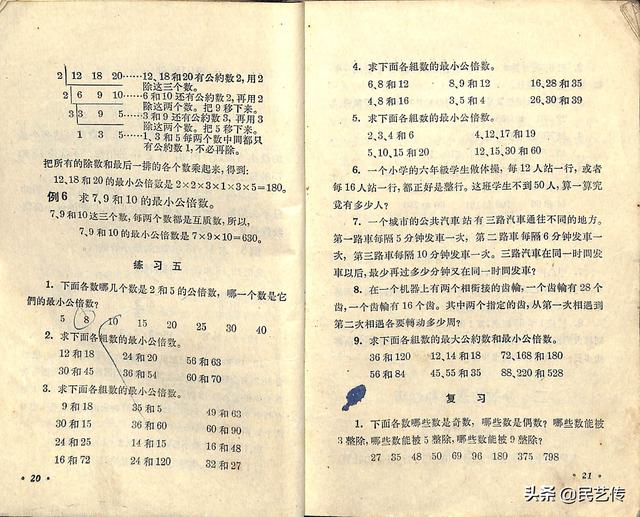 2 12 18 20……12、18和20有公約数2,用2
除这三个数。
2 6 9 10……6和10还有公約数2,再用2
除这两个数。把9移下来。
3 3 9 5……3和9还有公約数3,再用3
除这两个数。把5移下来。
1 3 5……1、3和5每两个数中間都只
有公約数1,不必再除。
把所有的除数和最后一排的各个数乘起来,得到:
12、18和20的最小公倍数是2×2×3×1×3×5=180。
例6 求7、9和10的最小公倍数。
7、9和10这三个数,每两个数都是互质数,所以,
7、9和10的最小公倍数是7×9×10=630。
练习五
1. 下面各数哪几个数是2和5的公倍数,哪一个数是它
們的最小公倍数?
5 8 10 15 20 25 30 40
2. 求下面各組数的最小公倍数。
12和18 24和20 56和63
30和45 36和54 60和70
3. 求下面各組数的最小公倍数。
9和18 35和5 49和63
30和15 36和60 60和90
24和25 14和15 16和48
16和72 24和120 32和27
• 20 •
4. 求下面各組数的最小公倍数。
6、8和12 8、9和12 16、28和35
4、8和16 3、5和4 26、30和39
5. 求下面各組数的最小公倍数。
2、3、4和6 4、12、17和19
5、10、15和20 12、15、30和60
6. 一个小学的六年級学生做体操,每12人站一行,或者
每16人站一行,都正好是整行。这班学生不到50人,算一算究
竟有多少人?
7. 一个城市的公共汽車站有三路汽車通往不同的地方。
第一路車每隔5分钟发車一次,第二路車每隔6分钟发車
一次,第三路車每隔10分钟发車一次。三路汽車在同一时間发
車以后,最少再过多少分钟又在同一时間发車?
8. 在一个机器上有两个相衔接的齒輪,一个齒輪有28个
齒,一个齒輪有16个齒。其中两个指定的齒,从第一次相遇到
第二次相遇各要轉动多少周?
9. 求下面各組数的最大公約数和最小公倍数。
36和120 12、14和18 72、168和180
56和84 45、55和35 88、220和528
复习
1. 下面各数哪些数是奇数,哪些数是偶数?哪些数能被
3整除,哪些数能被5整除,哪些数能被9整除?
27 35 48 50 69 96 180 375 798
• 21 •
头条 @民艺传